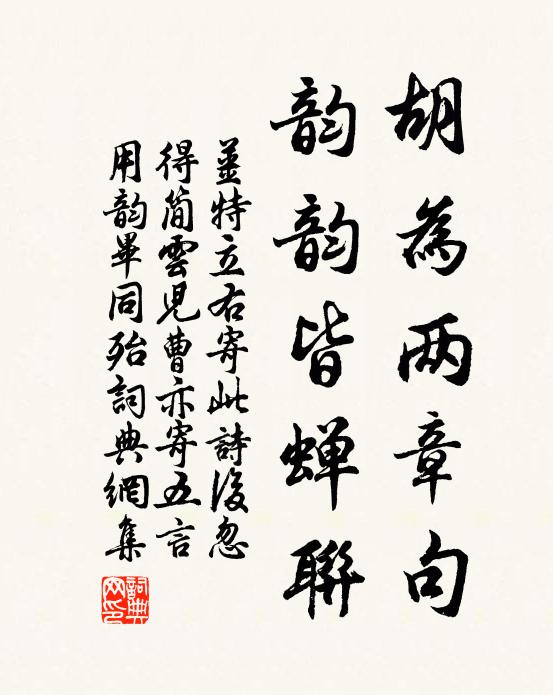 胡為两章句
韵韵皆蝉聯
薑特立右寄此詩後忽
得簡雲児曹亦寄五言
用韵畢同殆詞典網集
詞典网印